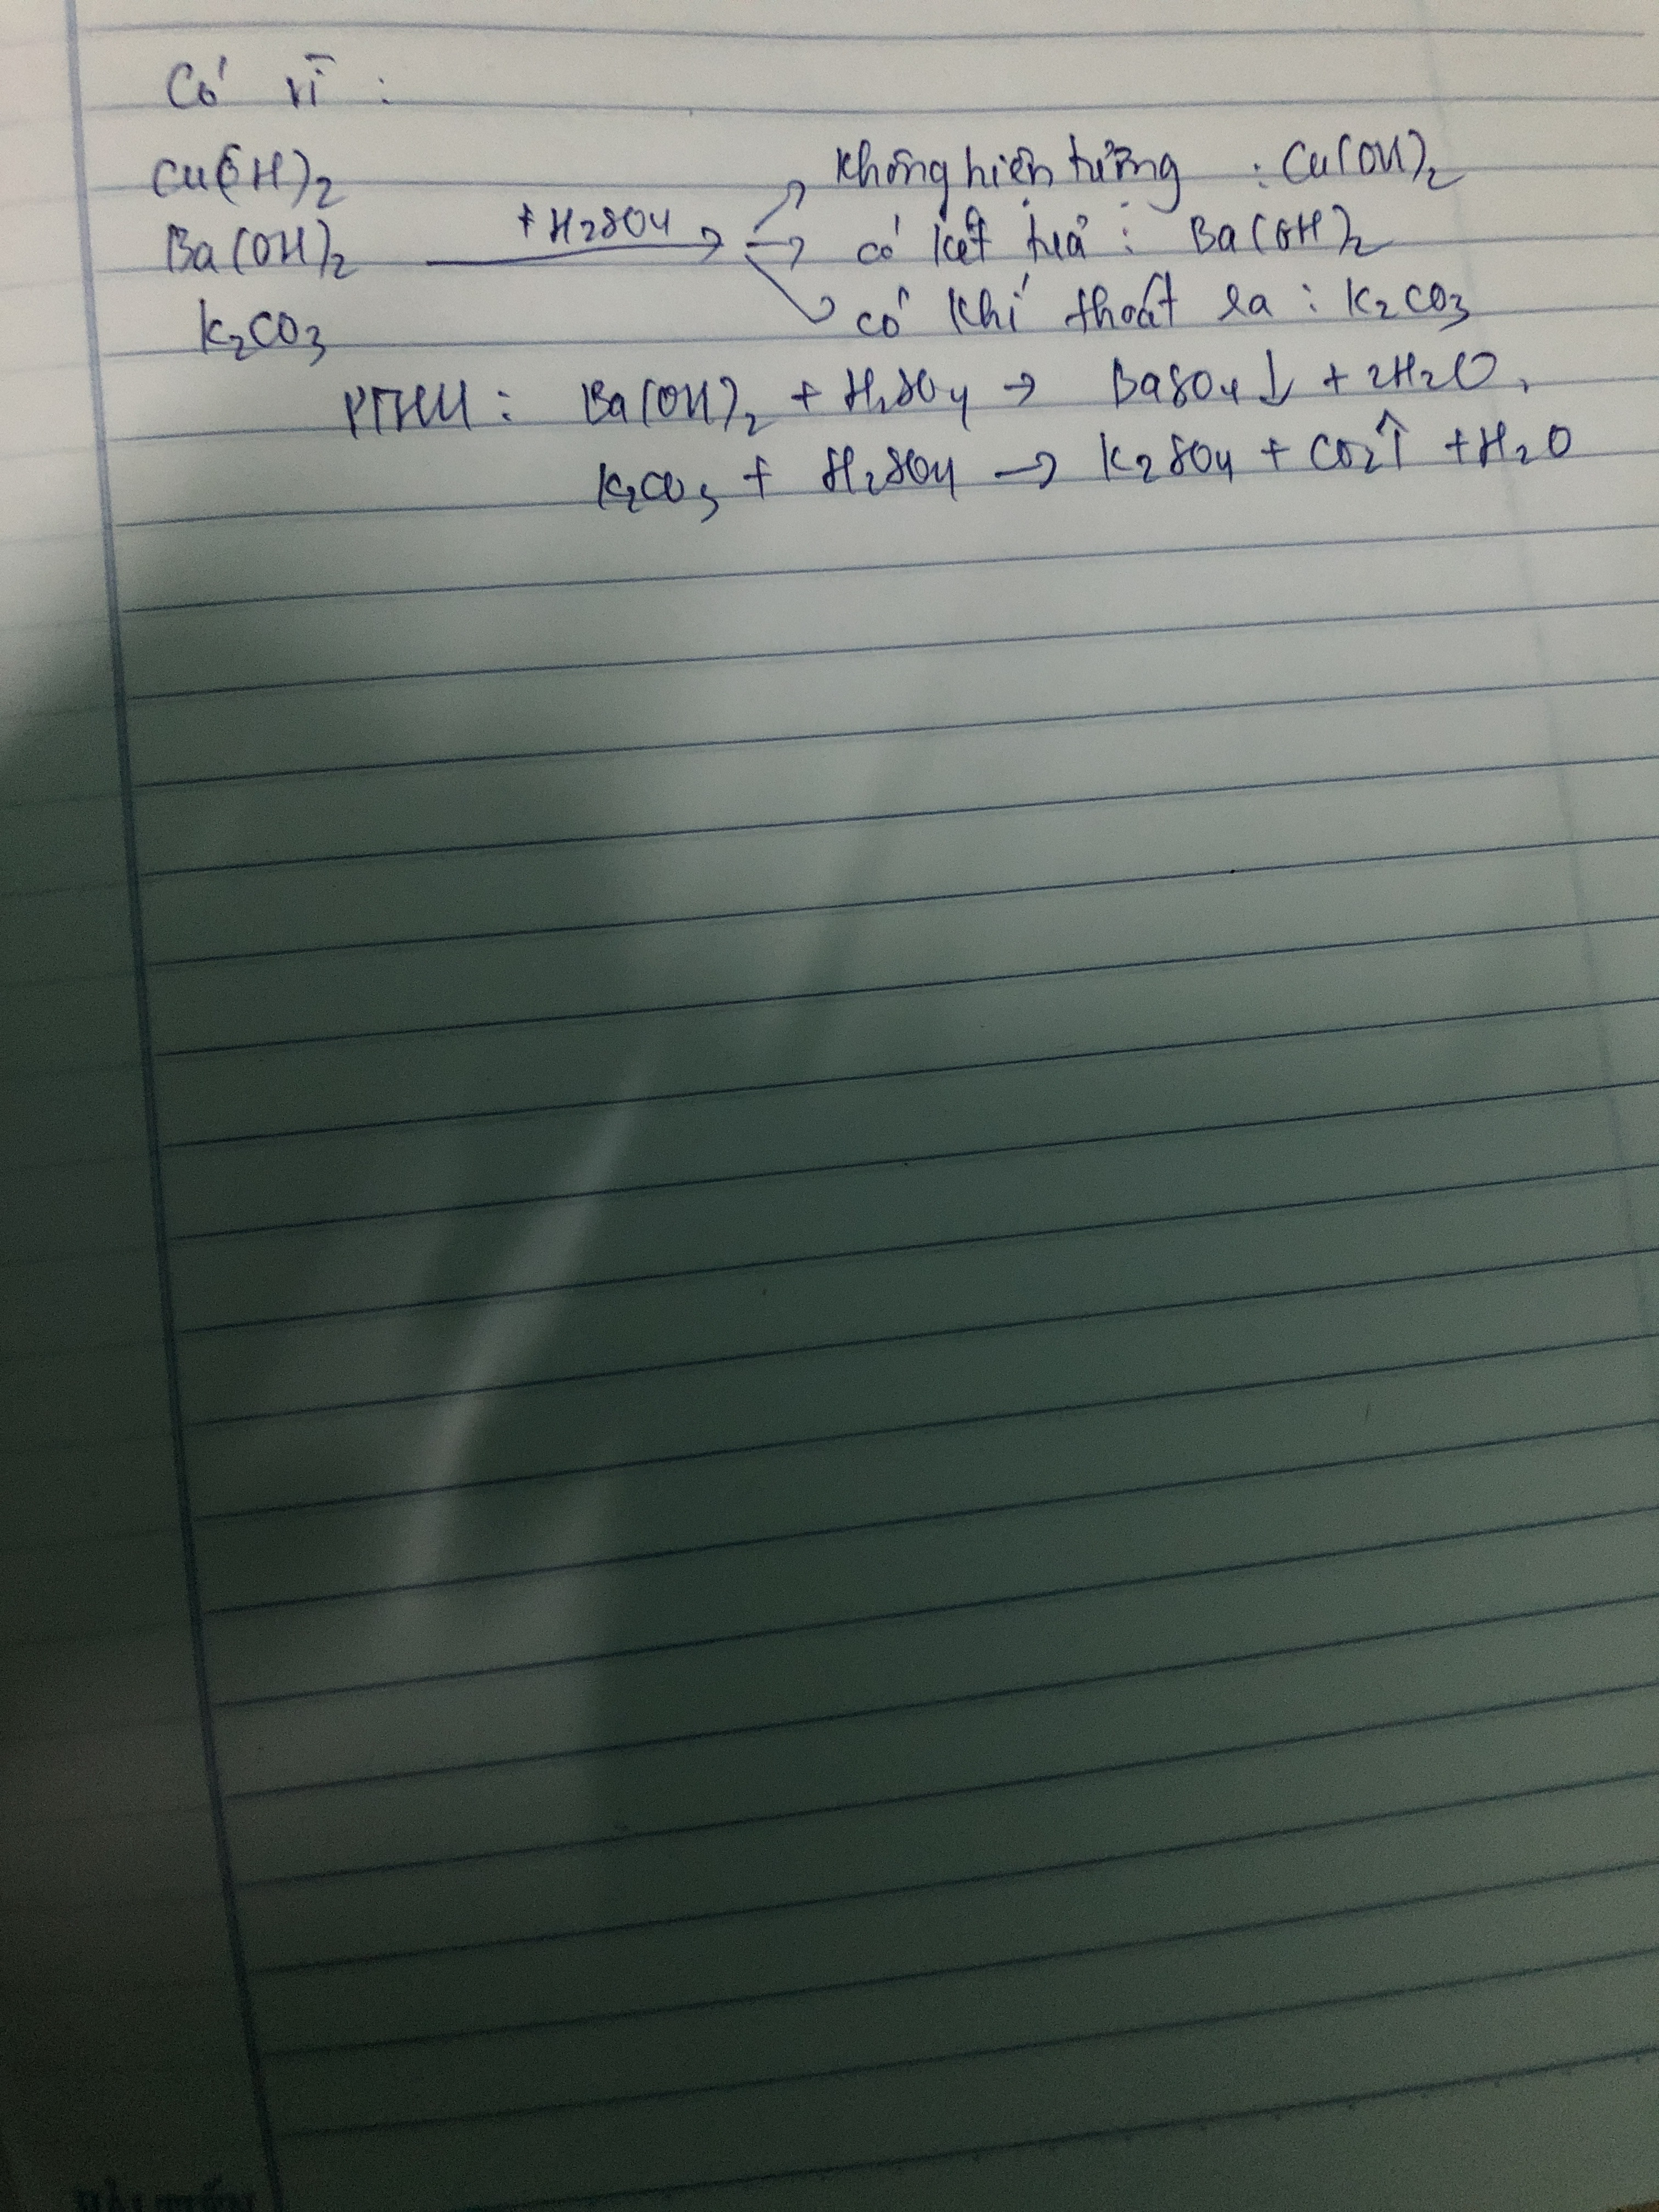 Có vì :
Cu(OH)2
Ba(OH)2
K2CO3
+ H2SO4
không hiện tượng : Cu(OH)2
có kết tủa : Ba(OH)2
có khí thoát ra : K2CO3
PTHH : Ba(OH)2 + H2SO4 → BaSO4↓ + 2H2O
K2CO3 + H2SO4 → K2SO4 + CO2↑ + H2O